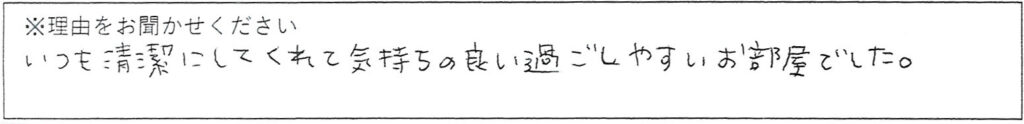 ※理由をお聞かせください
いつも清潔にしてくれて気持ちの良い過ごしやすいお部屋でした。